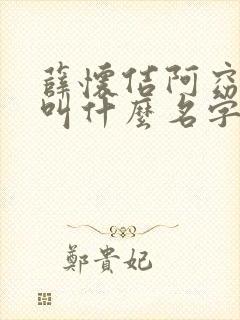 薛懷佶阿窈
叫什麼名字
鄭貴妃